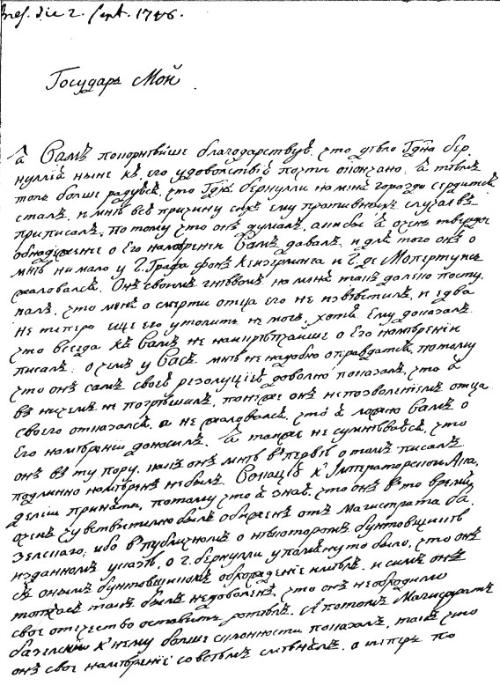 Pres. die 2. Sept. 1746.
Государь Мой
Я Вамъ покорнѣйше благодарствую, что дѣло Гдна Бер
нуллия ныне къ его удоволствию почти окончано. А тѣмъ
толь болше радуюсь, что Гднъ Бернулли на меня гораздо сердитъ
сталъ, и мнѣ всю причину сихъ ему противныхъ случаевъ
приписалъ, потому что онъ думалъ, аки бы я оченъ твердое
обнадежение о Его намѣрении Вамъ давалъ. и для того онъ о
мнѣ ни мало у Г. Графа фонъ Кейзерлинга и Г. де Мопертуиса
жаловался. Онъ своимъ гнѣвомъ на меня такъ далеко посту
палъ, что меня о смерти отца его не извѣстилъ, и едва
не теперъ еще его утолить не могъ, хотя Ему доказалъ
что всегда къ Вамъ не наикрѣпчайше о Его намѣрении
писалъ: о чемъ у Васъ мнѣ не надобно оправдатся, потому
что онъ самъ своею резолуциею доволно показалъ, что я
въ ничемъ не погрѣшилъ, понеже онъ непозволениемъ отца
своего отказался, а не жаловался, что я ложно Вамъ о
Его намѣрении доносилъ. Я также не сумнѣваюся, что
онъ въ ту пору, какъ онъ мнѣ въпервые о томъ писалъ
подлинно намѣренъ былъ Вокацию к' Імператорской Ака
демии принять, потому что я знаю, что онъ въ то время
оченъ чувствително былъ обиженъ отъ Магистрата Ба
зелскаго, ибо въ публичномъ о нѣкоторомъ бунтовщикѣ
изданномъ указѣ, о Г. бернулли упамянуто было, что онъ
съ онымъ бунтовщикомъ обхождение имѣлъ, и симъ онъ
тотчасъ такъ былъ недоволенъ, что онъ необходимо
свое отечество оставить хотѣлъ. А потомъ Магистратъ
базелский к' нему болше склонности показалъ, такъ что
онъ свое намѣрение совсѣмъ отмѣнилъ, а теперъ по